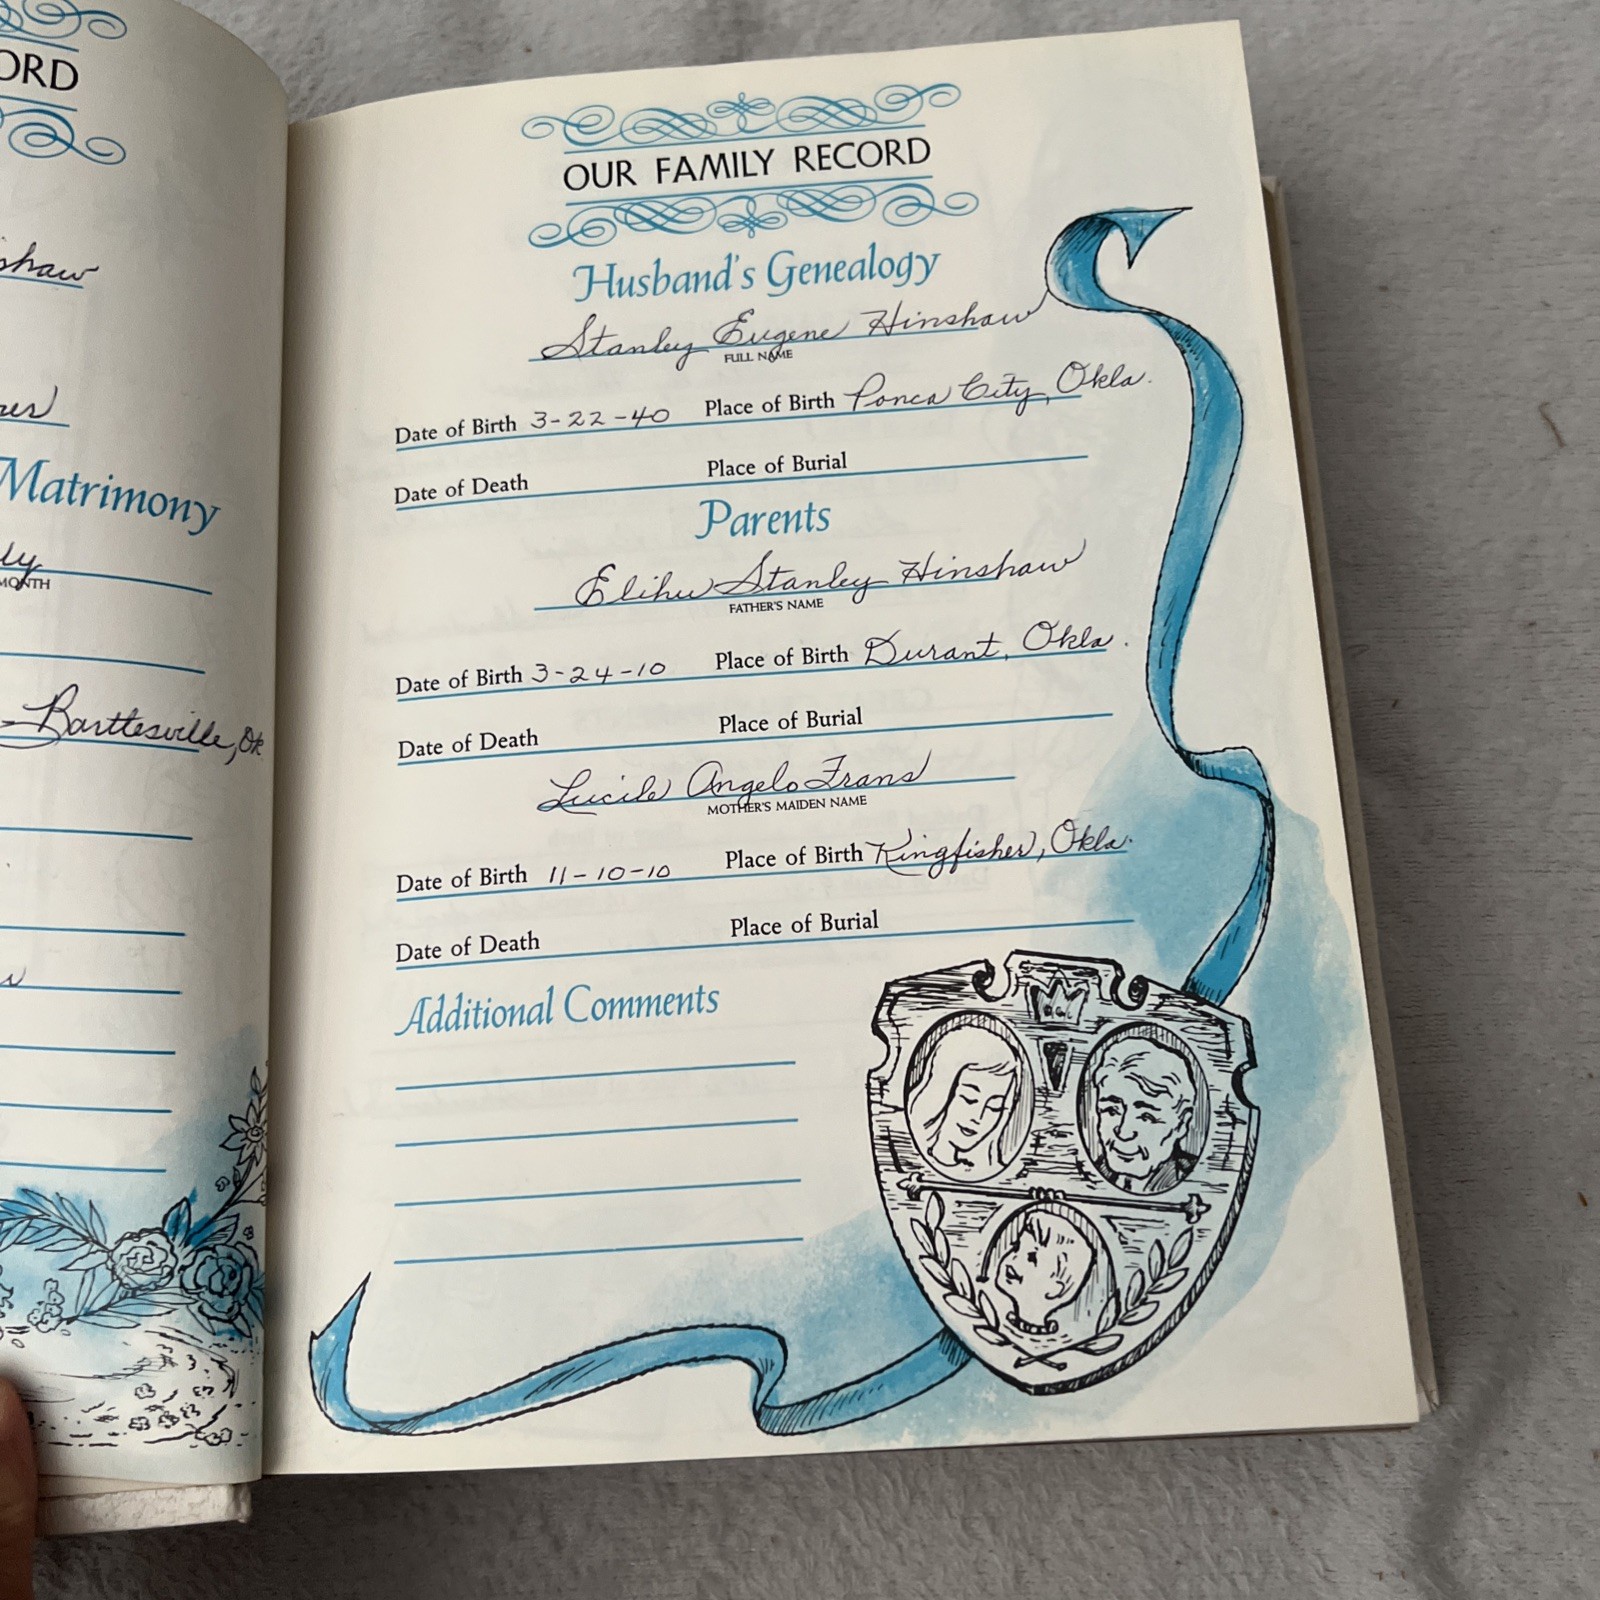 ORD
shaw
Matrimony
ly
MONTH
Barttesville, Ok
OUR FAMILY RECORD
Husband's Genealogy
Stanley Eugene Hinshaw
FULL NAME
Date of Birth 3-22-40 Place of Birth Ponca City, Okla.
Date of Death Place of Burial
Parents
Elihu Stanley Hinshaw
FATHER'S NAME
Date of Birth 3-24-10 Place of Birth Durant, Okla.
Date of Death Place of Burial
Lucile Angelo Frans
MOTHER'S MAIDEN NAME
Date of Birth 11-10-10 Place of Birth Kingfisher, Okla.
Date of Death Place of Burial
Additional Comments